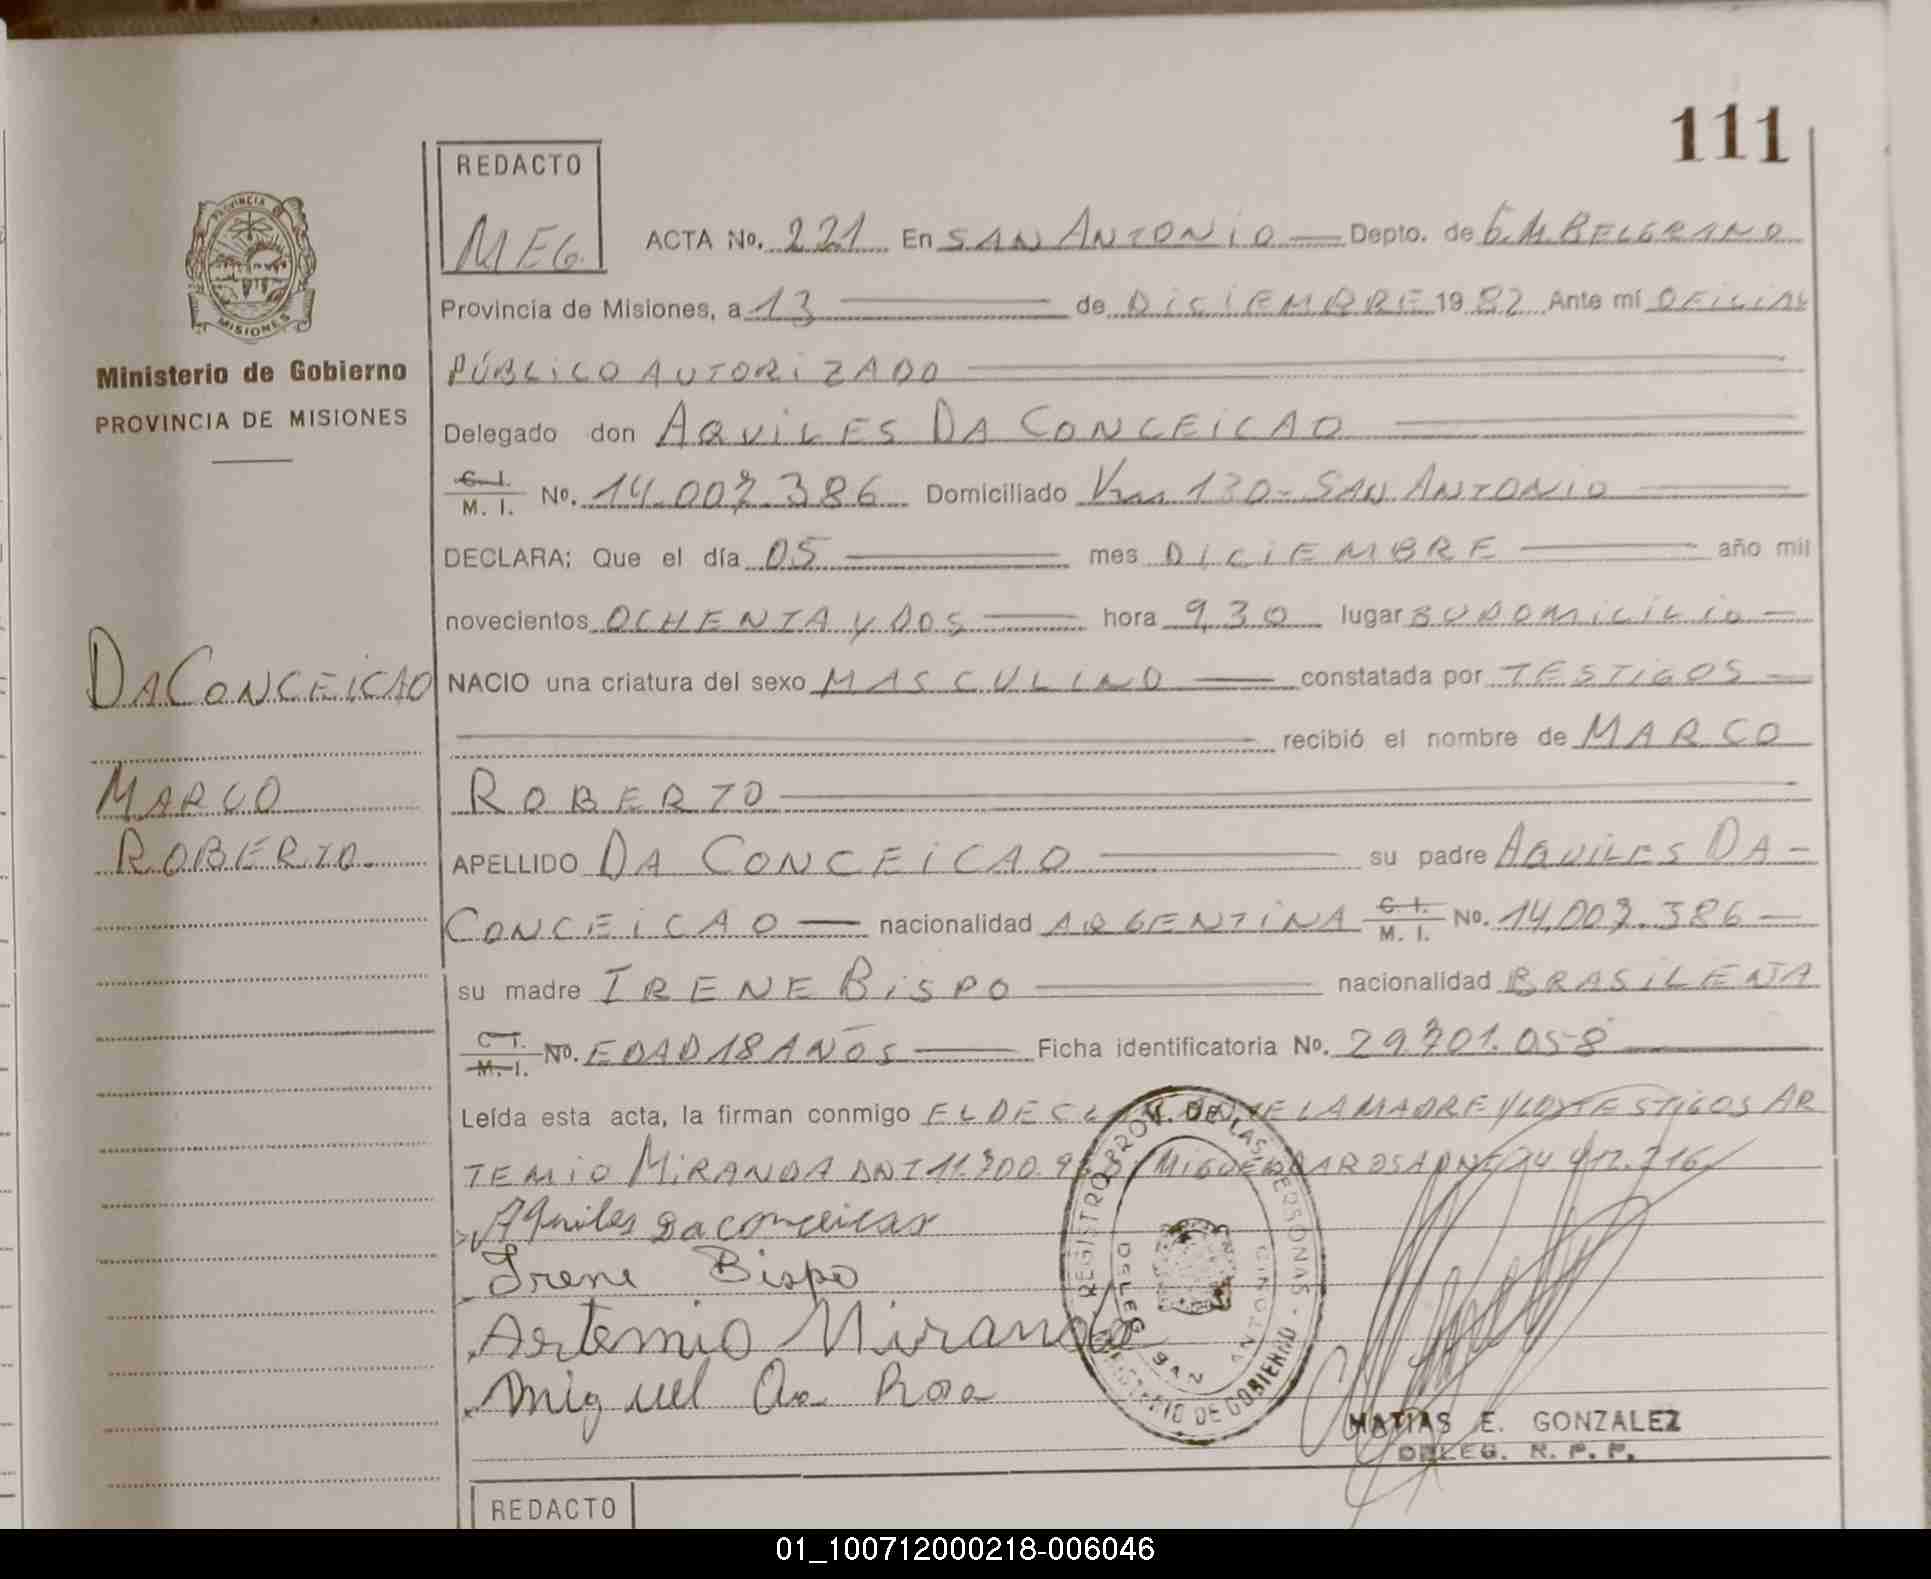 111
REDACTO
MEG.
ACTA No. 221 En SAN ANTONIO Depto. de G. M. BELGRANO
Provincia de Misiones, a 13 de DICIEMBRE 1982 Ante mí OFICIAL
PÚBLICO AUTORIZADO
Delegado don AQUILES DA CONCEICAO
C. I. / M. I. No. 14.007.386 Domiciliado Km 130 - SAN ANTONIO
DECLARA: Que el día 05 mes DICIEMBRE año mil
novecientos OCHENTA y DOS hora 9,30 lugar SU DOMICILIO
NACIO una criatura del sexo MASCULINO constatada por TESTIGOS
recibió el nombre de MARCO
ROBERTO
APELLIDO DA CONCEICAO su padre AQUILES DA -
CONCEICAO nacionalidad ARGENTINA C. I. / M. I. No. 14.007.386
su madre IRENE BISPO nacionalidad BRASILEÑA
C. I. / M. I. No. EDAD 18 AÑOS Ficha identificatoria No. 29.701.058
Leída esta acta, la firman conmigo EL DECLARANTE LA MADRE Y LOS TESTIGOS AR
TEMIO MIRANDA DNI 11.700.9 MIGUEL DA ROSA DNI
Aquiles Da conceicao
Irene Bispo
Artemio Miranda
Miguel Da Rosa
REGISTRO PROV. DE LAS PERSONAS
MINISTERIO DE GOBIERNO
DELEG. SAN ANTONIO
MATIAS E. GONZALEZ
DELEG. R. P. P.
REDACTO
PROVINCIA
MISIONES
Ministerio de Gobierno
PROVINCIA DE MISIONES
DA CONCEICAO
MARCO
ROBERTO.
01_100712000218-006046